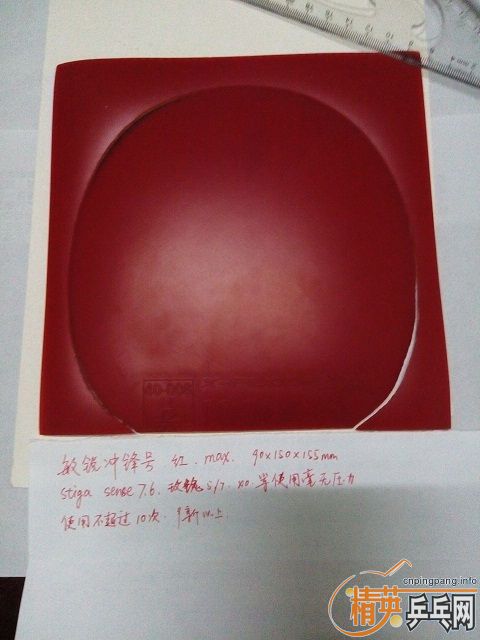 敏锐冲锋号 红. max. 90x150x155mm
stiga sense 7.6. 玫瑰5/7. xo. 等使用毫无压力
使用不超过10次. 9新以上.
cnpingpang.info
精英乒乓网